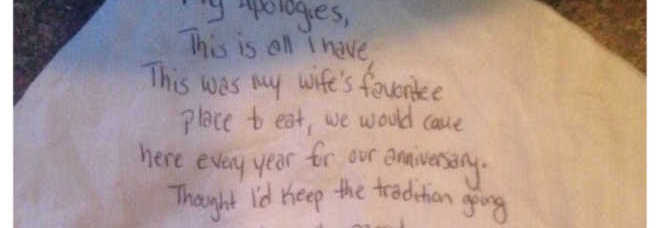 My Apologies,
This is all I have,
This was my wife's favoritee
place to eat, we would come
here every year for our anniversary.
Thought I'd keep the tradition going